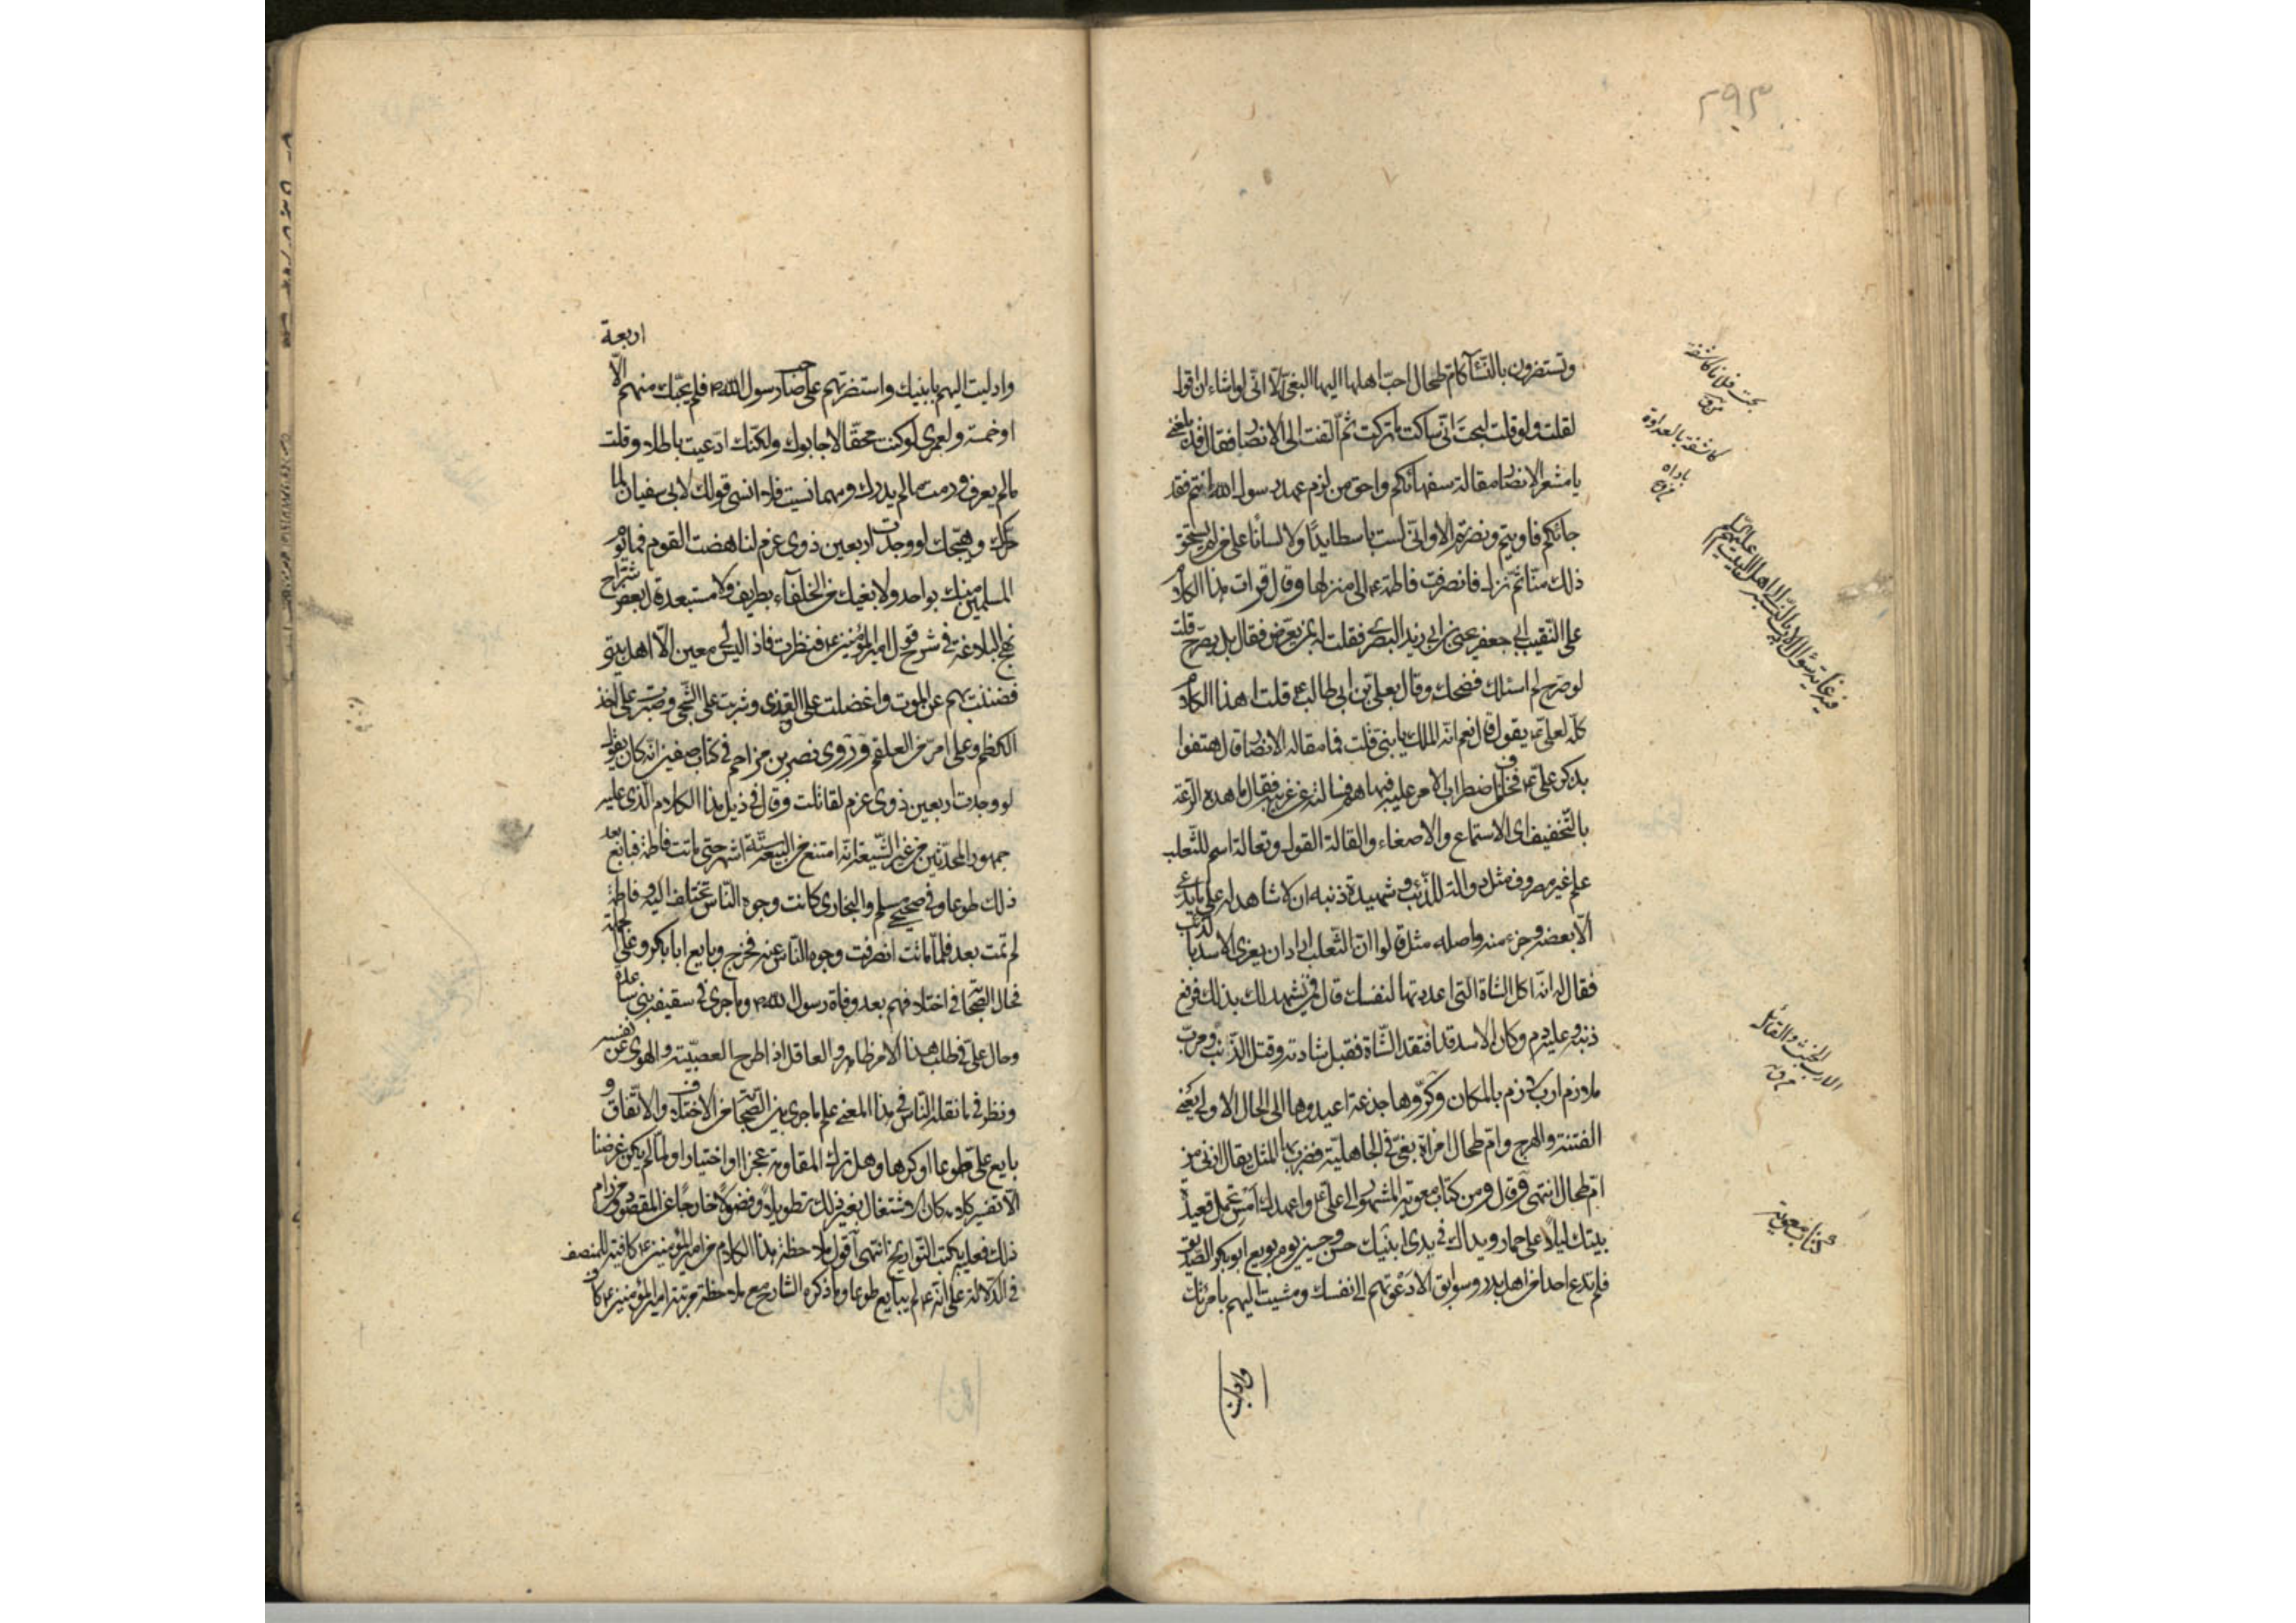 ٢٩٣
وتستضرون بالنسآ كام طحال احبّ اهلها اليها البغي الّا انّى لو اشاء ان اقول
لقلت ولو قلت لبحت انّى ساكت ما تركت ثمّ التفت الى الانصار فقال قد بلغنى
يا معشر الانصار مقالة سفهائكم واحق من لزم عهد رسول الله انتم فقد
جائكم فاويتم ونصرتم الا وانّى لست باسطا يدًا ولا لسانًا على من لم يستحق
ذلك منّا ثمّ نزل فانصرفت فاطمة ع الى منزلها وقال قرات هذا الكلام
على النقيب ابى جعفر يحيى بن ابى زيد البصرى فقلت له بمن يعرّض فقال بل يصرّح قلت
لو صرّح لم اسئلك فضحك وقال بعلىّ بن ابى طالب ع قلت اهذا الكلام
كلّه لعلى ع يقول قال نعم انّه الملك يا بنىّ قلت فما مقالة الانصار قال هتفوا
بذكر علىّ ع فخاف من اضطراب الامر عليه فنهاهم فسالته عن غريبه فقال ما هذه الرعة
بالتخفيف اى الاستماع والاصغاء والقالة القول وثعالة اسم للثّعلب
علم غير مصروف مثل ذوالة للذّئب وشهيده ذنبه اى لا شاهد له على ما يدّعى
الّا بعضه وجزء منه واصله مثل قالوا انّ الثّعلب اراد ان يغرى الاسد بالذئب
فقال له انّه اكل الشاة الّتى اعددتها لنفسك قال فمن يشهد لك بذلك فرفع
ذنبه وعليه دم وكان الاسد قد افتقد الشّاة فقبل شهادته وقتل الذّئب ومربّ
ملازم ارب لازم بالمكان وكرّوها جذعة اعيدوها الى الحال الاولى يعنى
الفتنة والهرج وامّ طحال امراة بغىّ فى الجاهليّة فضرب بها المثل يقال ازنى من
امّ طحال انتهى وقال ومن كتاب معوية المشهور الى علىّ ع واعهدك امس تحمل قعيدة
بيتك ليلًا على حمار ويداك فى يدى ابنيك حسن وحسين يوم بويع ابو بكر الصّديق
فلم تدع احدا من اهل بدر وسوابق الا دعوتهم الى نفسك ومشيت اليهم بامرئتك
وادليت
كاشفة بالعداوة
باداه
كتاب معوية
وادليت اليهم بابنيك واستنصرتهم على صاحب رسول الله فلم يجبك منهم الّا
اربعة
او خمسة ولعمرى لو كنت محقّا لاجابوك ولكنّك ادّعيت باطلا وقلت
مالم يعرف ورمت مالم يدرك ومهما نسيت فلا انسى قولك لابى سفيان لما
حرّكك وهيّجك لو وجدت اربعين ذوى عزم لناهضت القوم فما يوم
المسلمين منك بواحد ولا بغيك على الخلفاء بطريف ولا مستبعد وقال بعض شرّاح
نهج البلاغة فى شرح قول امير المؤمنين ع فنظرت فاذا ليس لى معين الّا اهل بيتى
فضننت بهم عن الموت واغضيت على القذى وشربت على الشّجى وصبرت على اخذ
الكظم وعلى امرّ من العلقم وروى نصر بن مزاحم فى كتاب صفين انّه كان يقول
لو وجدت اربعين ذوى عزم لقاتلت وقال فى ذيل هذا الكلام الّذى عليه
جمهور المحدّثين من غير الشّيعة انّه امتنع من البيعة ستّة اشهر حتّى ماتت فاطمة فبايع بعد
ذلك طوعا وفى صحيحى مسلم والبخارى كانت وجوه النّاس تختلف اليه وفاطمة
لم تمت بعد فلمّا ماتت انصرفت وجوه النّاس عنه فخرج وبايع ابا بكر
فحال الصّحابة فى اختلافهم بعد وفاة رسول الله وما جرى فى سقيفة بنى ساعدة
وحال علىّ فى طلب هذا الامر ظاهر والعاقل اذا طرح العصبيّة والهوى عن نفسه
ونظر فى ما نقله النّاس فى هذا المعنى علم ما جرى بين الصّحابة من الاختلاف والاتّفاق و
بايع علىّ طوعا او كرها وهل ترك المقاومة عجزا او اختيارا ولمّا لم يكن غرضنا
الّا تفسير كلامه كان الاشتغال بغير ذلك تطويلا وفضولا خارجا عن المقصود ومن رام
ذلك فعليه بكتب التّواريخ انتهى اقول ملاحظة هذا الكلام من امير المؤمنين ع كافية للمنصف
فى الدّلالة على انّه ع لم يبايع طوعا وما ذكره الشارح مع ملاحظة مرتبة امير المؤمنين ع كاف